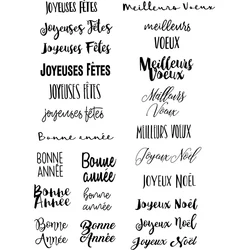 Joyeuses Fêtes
Joyeuses Fêtes
Joyeuses Fêtes
Joyeuses Fêtes
Joyeuses Fêtes
joyeuses fêtes
Bonne année
Bonne
Année
Bonne
année
Bonne
Année
bonne
année
Bonne
Année
Bonne
Année
Meilleurs Voeux
meilleurs
voeux
Meilleurs
Voeux
Meilleurs
Voeux
Meilleurs Voeux
Joyeux Noël
Joyeux Noël
Joyeux Noël
Joyeux Noël
Joyeux Noël